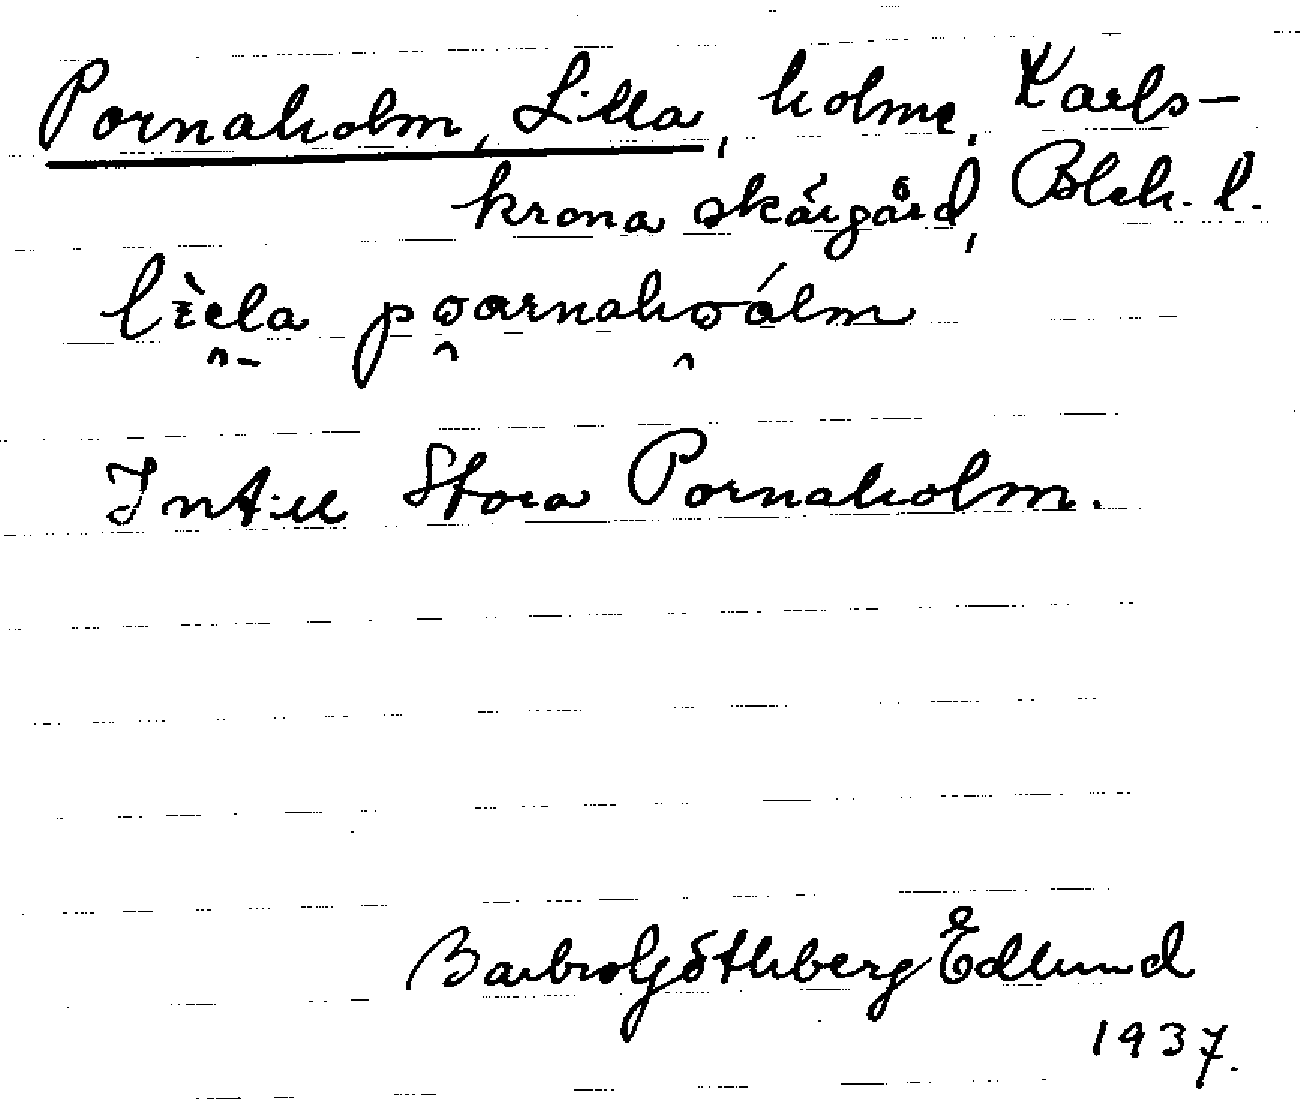 Pornaholm, Lilla, holme, Karls-
krona skärgård, Blek. l.
Intill Stora Pornaholm.
Barbro Götheberg Edlund
1937.